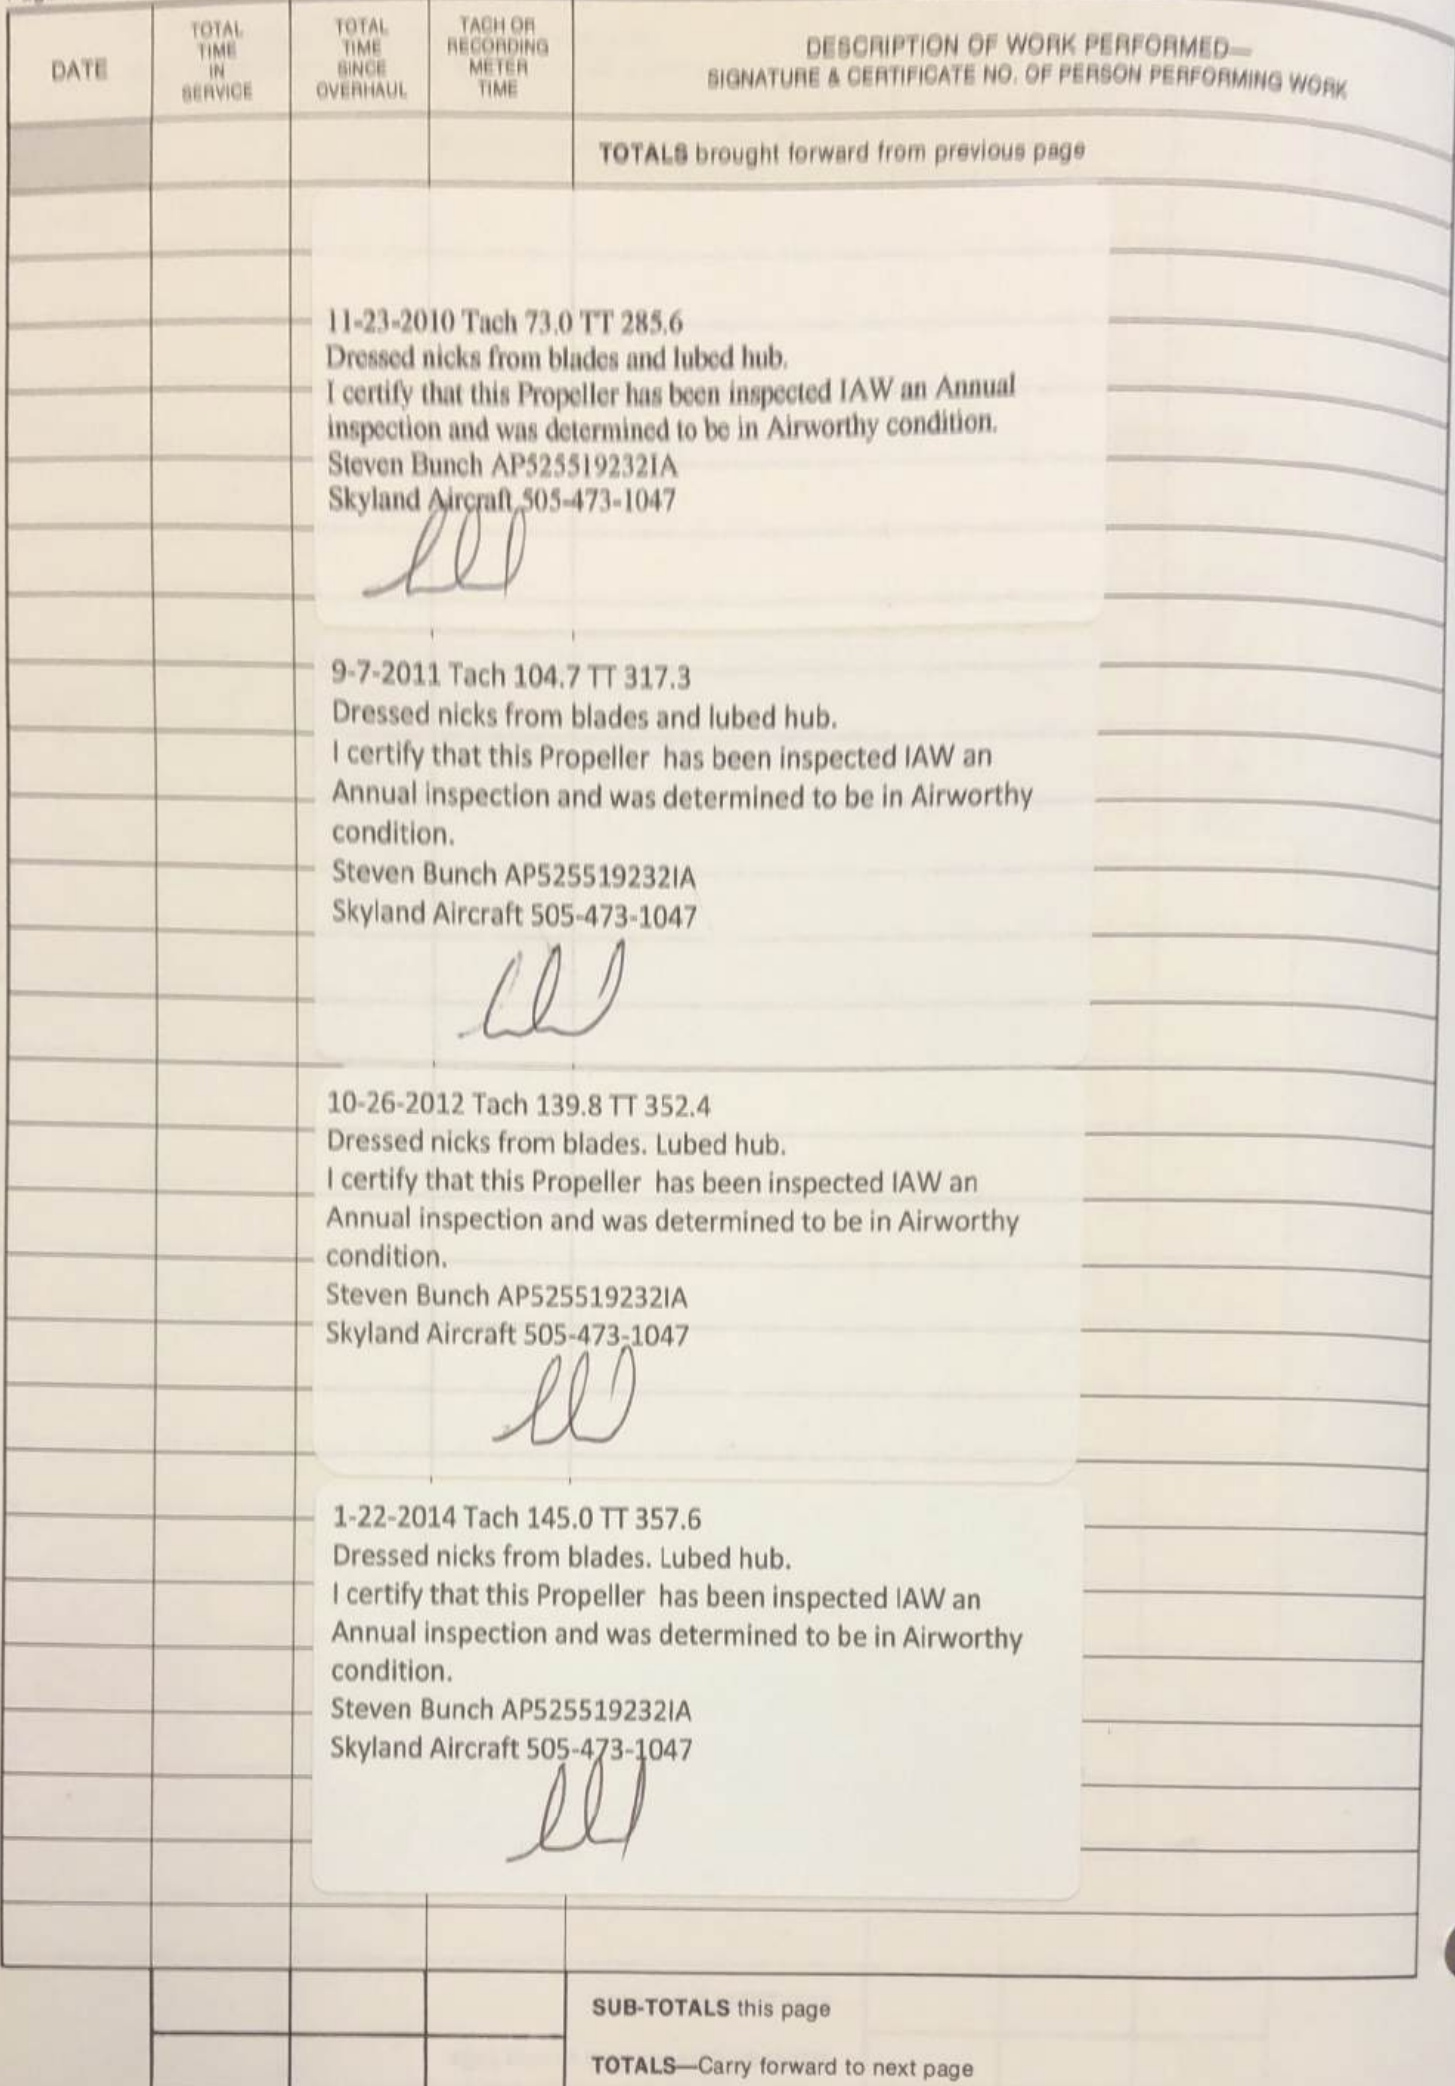 DATE
TOTAL
TIME
IN
SERVICE
TOTAL
TIME
SINCE
OVERHAUL
TACH OR
RECORDING
METER
TIME
DESCRIPTION OF WORK PERFORMED—
SIGNATURE & CERTIFICATE NO. OF PERSON PERFORMING WORK
TOTALS brought forward from previous page
11-23-2010 Tach 73.0 TT 285.6
Dressed nicks from blades and lubed hub.
I certify that this Propeller has been inspected IAW an Annual
inspection and was determined to be in Airworthy condition.
Steven Bunch AP525519232IA
Skyland Aircraft 505-473-1047
9-7-2011 Tach 104.7 TT 317.3
Dressed nicks from blades and lubed hub.
I certify that this Propeller has been inspected IAW an
Annual inspection and was determined to be in Airworthy
condition.
Steven Bunch AP525519232IA
Skyland Aircraft 505-473-1047
10-26-2012 Tach 139.8 TT 352.4
Dressed nicks from blades. Lubed hub.
I certify that this Propeller has been inspected IAW an
Annual inspection and was determined to be in Airworthy
condition.
Steven Bunch AP525519232IA
Skyland Aircraft 505-473-1047
1-22-2014 Tach 145.0 TT 357.6
Dressed nicks from blades. Lubed hub.
I certify that this Propeller has been inspected IAW an
Annual inspection and was determined to be in Airworthy
condition.
Steven Bunch AP525519232IA
Skyland Aircraft 505-473-1047
SUB-TOTALS this page
TOTALS—Carry forward to next page